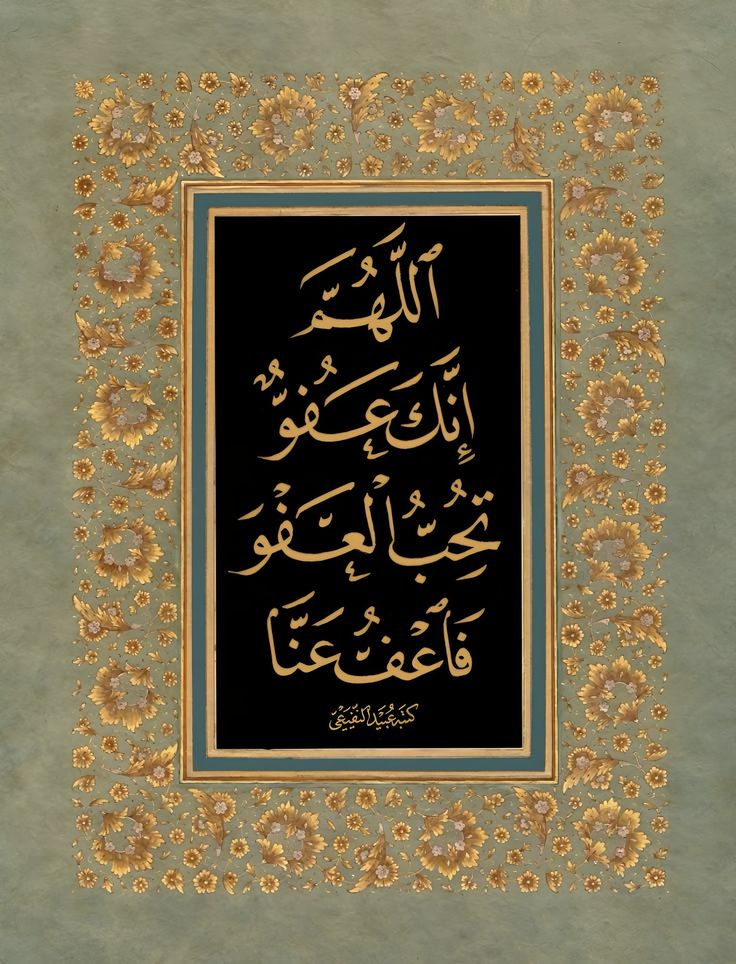 ٱللَّهُمَّ
إِنَّكَ عَفُوٌّ
تُحِبُّ ٱلْعَفْوَ
فَٱعْفُ عَنَّا
كتبه عبيد النفيعي